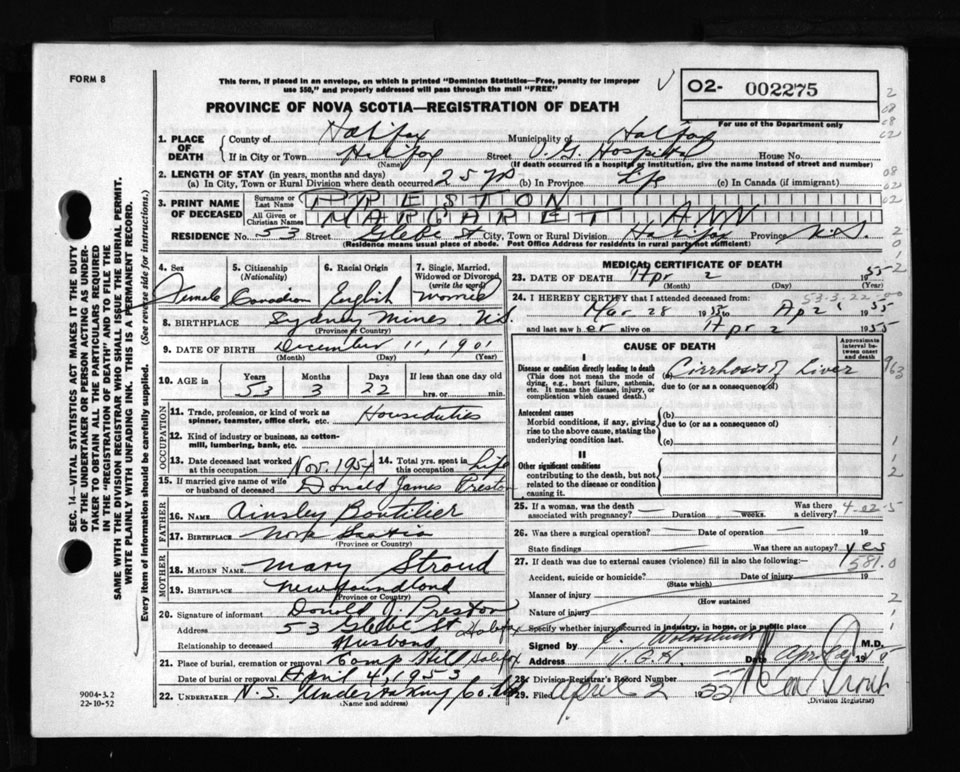 FORM 8
This form, if placed in an envelope, on which is printed "Dominion Statistics—Free, penalty for improper
use $50," and properly addressed will pass through the mail "FREE"
PROVINCE OF NOVA SCOTIA—REGISTRATION OF DEATH
O2- 002275
For use of the Department only
1. PLACE OF DEATH
County of Halifax Municipality of Halifax
If in City or Town Halifax Street V.G. Hospital House No.
(Name) (If death occurred in a hospital or institution, give the name instead of street and number)
2. LENGTH OF STAY (in years, months and days)
(a) In City, Town or Rural Division where death occurred 25 yrs (b) In Province Life (c) In Canada (if immigrant)
3. PRINT NAME OF DECEASED
Surname or Last Name PRESTON
All Given or Christian Names MARGARET ANN
RESIDENCE No. 53 Street Glebe St City, Town or Rural Division Halifax Province N.S.
(Residence means usual place of abode. Post Office Address for residents in rural parts not sufficient)
4. Sex Female
5. Citizenship (Nationality) Canadian
6. Racial Origin English
7. Single, Married, Widowed or Divorced (write the word)
8. BIRTHPLACE Sydney Mines N.S.
(Province or Country)
9. DATE OF BIRTH December 11, 1901
(Month) (Day) (Year)
10. AGE in Years 53 Months 3 Days 22 If less than one day old hrs. or min.
OCCUPATION
11. Trade, profession, or kind of work as spinner, teamster, office clerk, etc. Houseduties
12. Kind of industry or business, as cotton-mill, lumbering, bank, etc.
13. Date deceased last worked at this occupation Nov. 1954
14. Total yrs. spent in this occupation Life
15. If married give name of wife or husband of deceased Donald James Preston
FATHER
16. NAME Ainsley Boutilier
17. BIRTHPLACE Nova Scotia
(Province or Country)
MOTHER
18. MAIDEN NAME Mary Stroud
19. BIRTHPLACE Newfoundland
(Province or Country)
20. Signature of informant Donald J. Preston
Address 53 Glebe St Halifax
Relationship to deceased Husband
21. Place of burial, cremation or removal Camp Hill Halifax
Date of burial or removal April 4, 1953
22. UNDERTAKER N.S. Undertaking Co. Ltd
(Name and address)
MEDICAL CERTIFICATE OF DEATH
23. DATE OF DEATH Apr 2 1955
(Month) (Day)
24. I HEREBY CERTIFY that I attended deceased from:
Mar 28 1955 to Apr 2 1955
and last saw her alive on Apr 2 1955
CAUSE OF DEATH
Approximate interval between onset and death
I
Disease or condition directly leading to death (a) Cirrhosis of Liver
(This does not mean the mode of dying, e.g., heart failure, asthenia, etc. It means the disease, injury, or complication which caused death.)
due to (or as a consequence of)
Antecedent causes (b)
Morbid conditions, if any, giving rise to the above cause, stating the underlying condition last.
due to (or as a consequence of)
(c)
II
Other significant conditions
contributing to the death, but not related to the disease or condition causing it.
25. If a woman, was the death associated with pregnancy? — Duration weeks. Was there a delivery?
26. Was there a surgical operation? — Date of operation 19
State findings Was there an autopsy? Yes
27. If death was due to external causes (violence) fill in also the following:—
581.0
Accident, suicide or homicide? Date of injury 19
(State which)
Manner of injury
(How sustained)
Nature of injury
Specify whether injury occurred in industry, in home, or in public place
Signed by M.D.
Address V.G.H. Date April 19
28. Division Registrar's Record Number
29. Filed April 2 1955
(Division Registrar)
SEC. 14—VITAL STATISTICS ACT MAKES IT THE DUTY
OF THE UNDERTAKER OR PERSON ACTING AS UNDER-
TAKER TO OBTAIN ALL THE PARTICULARS REQUIRED
IN THE "REGISTRATION OF DEATH" AND TO FILE THE
SAME WITH THE DIVISION REGISTRAR WHO SHALL ISSUE THE BURIAL PERMIT.
WRITE PLAINLY WITH UNFADING INK. THIS IS A PERMANENT RECORD.
Every item of information should be carefully supplied. (See reverse side for instructions.)
9004-3.2
22-10-52